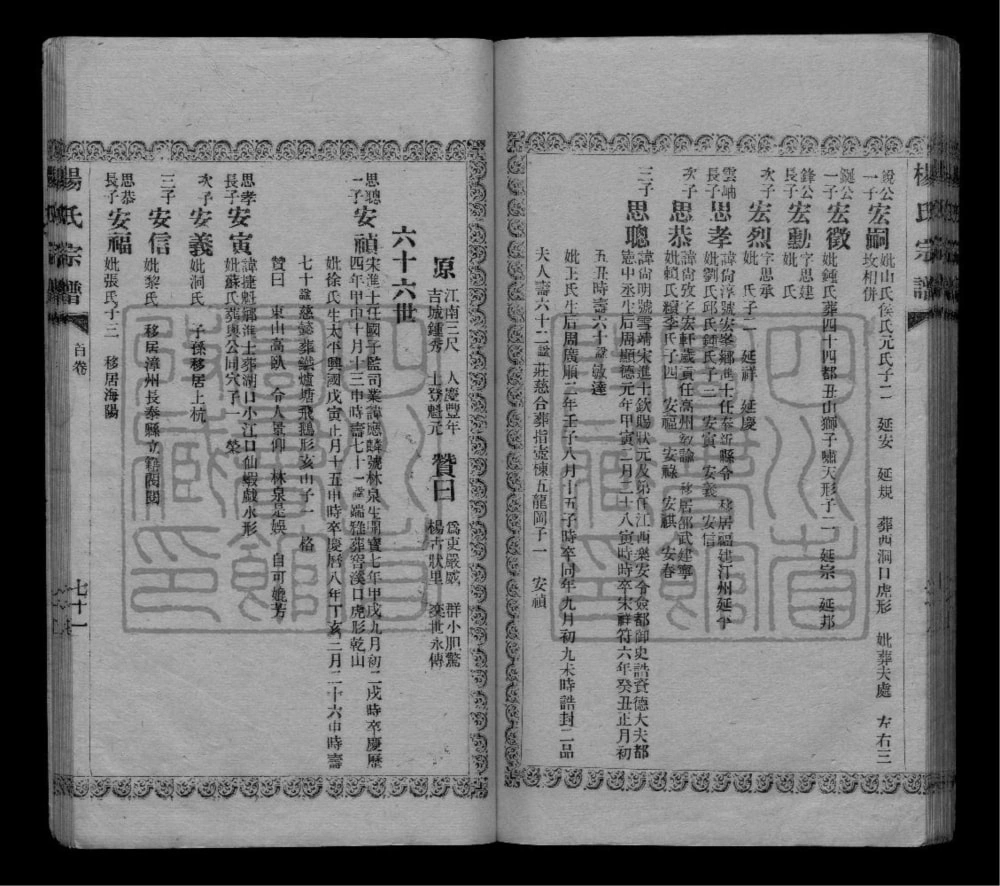 楊氏宗譜
銳公一子宏嗣 妣山氏侯氏元氏子二 延安 延規 葬西洞口虎形 妣葬夫處 左右三
坟相併
鋋公一子宏徵 妣鍾氏葬四十四都丑山獅子嘯天形子二 延宗 延邦
鋒公長子宏勳 字思建 妣 氏
次子宏烈 字思承 妣 氏子二 延祥 延慶
雲岫長子思孝 諱尚淳號安峯鄉進士任奉沂縣令 移居福建汀州延平
妣劉氏邱氏鍾氏子三 安寅 安義 安信
次子思恭 諱尚攷字宏軒歲貢任高州敎諭 移居邵武建寧
妣賴氏續李氏子四 安福 安祿 安祺 安春
三子思聰 諱尚明號雪靖宋進士欽賜狀元及第任江西樂安令僉都御史誥資德大夫都
憲中丞生后周顯德元年甲寅二月二十八寅時卒宋祥符六年癸丑正月初
五丑時壽六十諡敏達
妣正氏生后周廣順二年壬子八月十五子時卒同年九月初九未時誥封二品
夫人壽六十二諡莊慈合葬指壺棟五龍岡子一 安禎
原 江南三尺 人慶豐年
吉城鍾秀 士登魁元
贊曰 爲吏嚴威 群小胆驚
楊杏狀里 奕世永傳
六十六世
思聰一子安禎 宋進士任國子監司業諱應麟號林泉生開寶七年甲戌九月初二戌時卒慶歷
四年甲申十月十三申時壽七十一諡端雅葬窖溪口虎形乾山
妣徐氏生太平興國戊寅正月十五甲時卒慶曆八年丁亥二月二十六申時壽
七十諡慈懿葬鐵爐塘飛鵝形亥山子一 格
贊曰 東山高臥 令人景仰 林泉是娛 自可媲芳
思孝長子安寅 諱捷魁鄉進士葬湖口小江口仙蝦戲水形
妣蘇氏葬與公同穴子一 榮
次子安義 妣洞氏 子孫移居上杭
三子安信 妣黎氏 移居漳州長泰縣立籍閥閱
思恭長子安福 妣張氏子三 移居海陽
楊氏宗譜 首卷 七十一